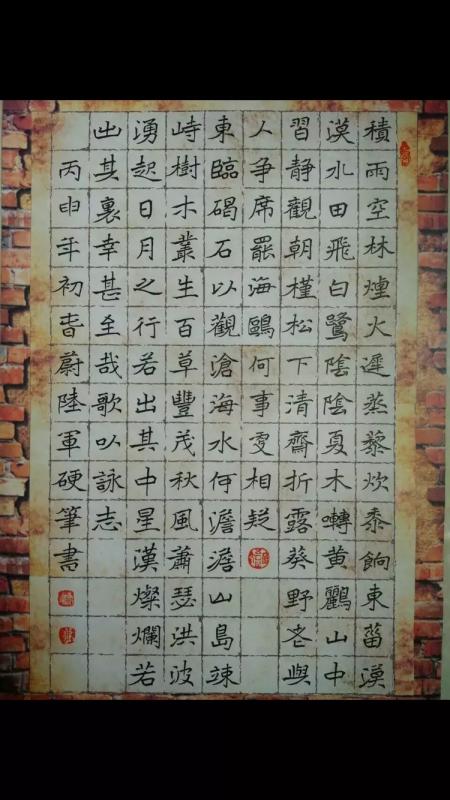 積雨空林煙火遲蒸藜炊黍餉東菑漠
漠水田飛白鷺陰陰夏木囀黃鸝山中
習靜觀朝槿松下清齋折露葵野老與
人爭席罷海鷗何事更相疑
東臨碣石以觀滄海水何澹澹山島竦
峙樹木叢生百草豐茂秋風蕭瑟洪波
湧起日月之行若出其中星漢燦爛若
出其裏幸甚至哉歌以詠志
丙申年初春蔚陸軍硬筆書